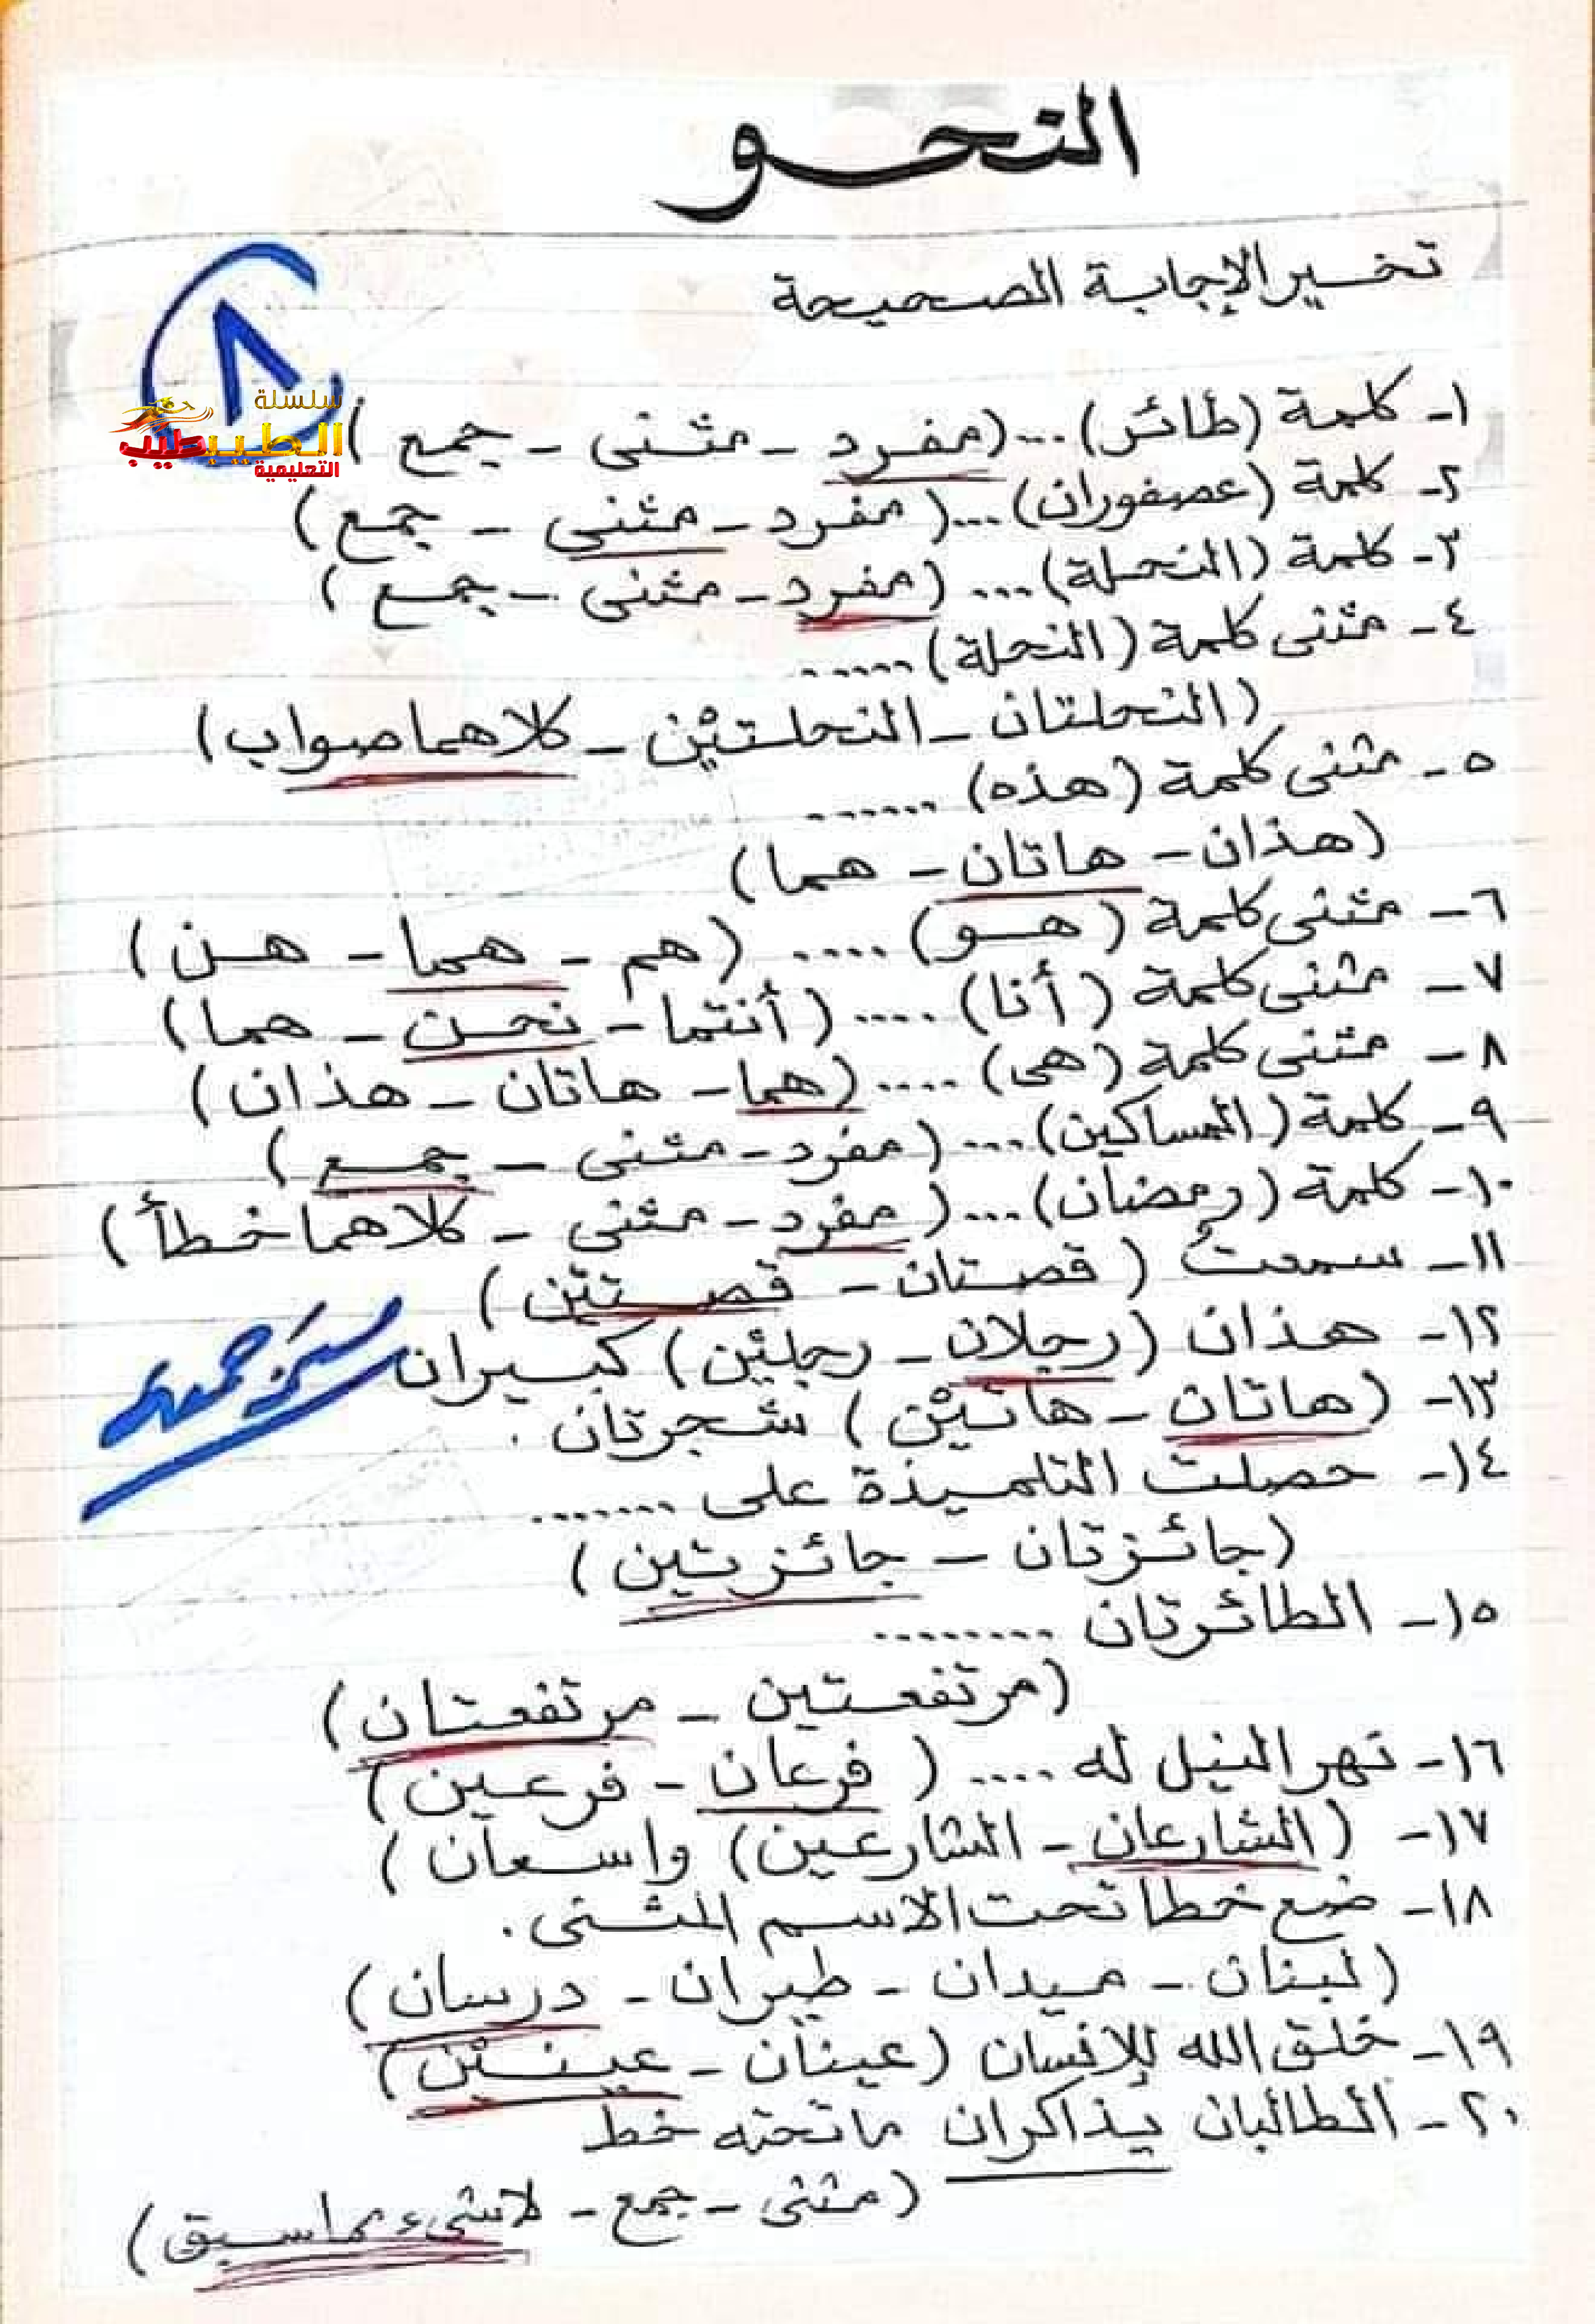 النحو
تخير الإجابة الصحيحة
٨
سلسلة
الطبيب طيب
التعليمية
١- كلمة (طائر) ... (مفرد - مثنى - جمع)
٢- كلمة (عصفوران) ... (مفرد - مثنى - جمع)
٣- كلمة (النحلة) .... (مفرد - مثنى - جمع)
٤- مثنى كلمة (النحلة) ......
(النحلتان - النحلتيْن - كلاهما صواب)
٥- مثنى كلمة (هذه) .......
(هذان - هاتان - هما)
٦- مثنى كلمة (هو) .... (هم - هما - هن)
٧- مثنى كلمة (أنا) .... (أنتما - نحن - هما)
٨- مثنى كلمة (هى) .... (هما - هاتان - هذان)
٩- كلمة (المساكين) ... (مفرد - مثنى - جمع)
١٠- كلمة (رمضان) ... (مفرد - مثنى - كلاهما خطأ)
١١- سمعتُ (قصتان - قصتيْن)
١٢- هذان (رجلان - رجليْن) كبيران
١٣- (هاتان - هاتيْن) شجرتان .
١٤- حصلت التلميذة على .......
(جائزتان - جائزتين)
١٥- الطائرتان ........
(مرتفعتين - مرتفعتان)
١٦- نهر النيل له .... (فرعان - فرعين)
١٧- (الشارعان - الشارعين) واسعان)
١٨- ضع خطا تحت الاسم المثنى .
(لبنان - ميدان - طيران - درسان)
١٩- خلق الله للإنسان (عينان - عينيْن)
٢٠- الطالبان يذاكران ما تحته خط
(مثنى - جمع - لا شىء مما سبق)